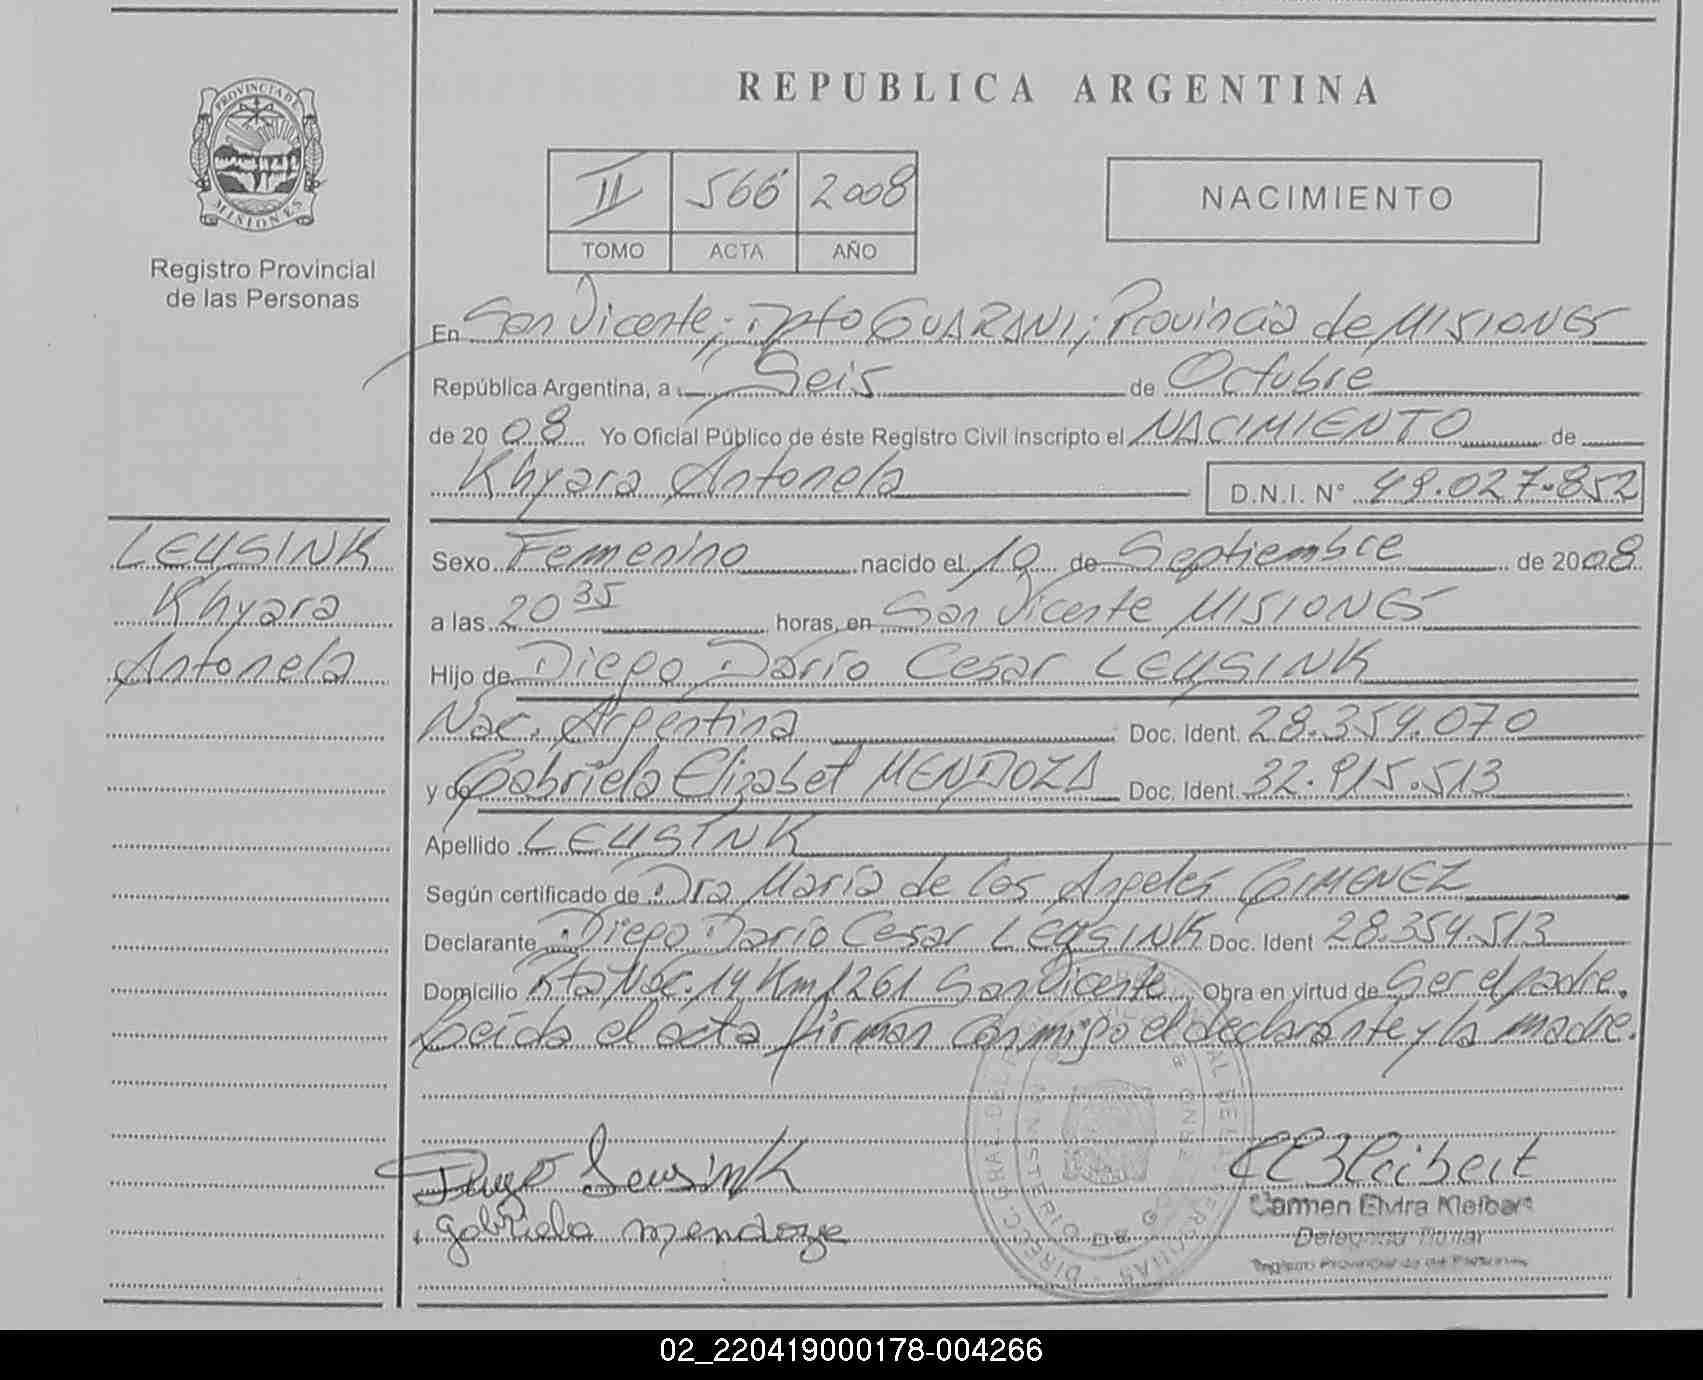 REPUBLICA ARGENTINA
PROVINCIA DE
MISIONES
Registro Provincial
de las Personas
II 566 2008
TOMO ACTA AÑO
NACIMIENTO
En San Vicente; Dpto GUARANI; Provincia de MISIONES
República Argentina, a Seis de Octubre
de 2008 Yo Oficial Público de éste Registro Civil inscripto el NACIMIENTO de
Khyara Antonela D.N.I. N° 49.027.852
LEUSINK
Khyara
Antonela
Sexo Femenino nacido el 10 de Septiembre de 2008
a las 20 35 horas, en San Vicente MISIONES
Hijo de Diego Dario Cesar LEUSINK
Nac. Argentina Doc. Ident. 28.354.070
y de Gabriela Elizabet MENDOZA Doc. Ident. 32.915.513
Apellido LEUSINK
Según certificado de Dra Maria de los Angeles GIMENEZ
Declarante Diego Dario Cesar LEUSINK Doc. Ident 28.354.513
Domicilio Rta Nac. 14 Km 1261 San Vicente Obra en virtud de Ser el padre.
Leida el acta firman conmigo el declarante y la madre.
Diego Leusink
gabriela mendoza
Carmen Elvira Kleibert
Registro Provincial de las Personas
02_220419000178-004266